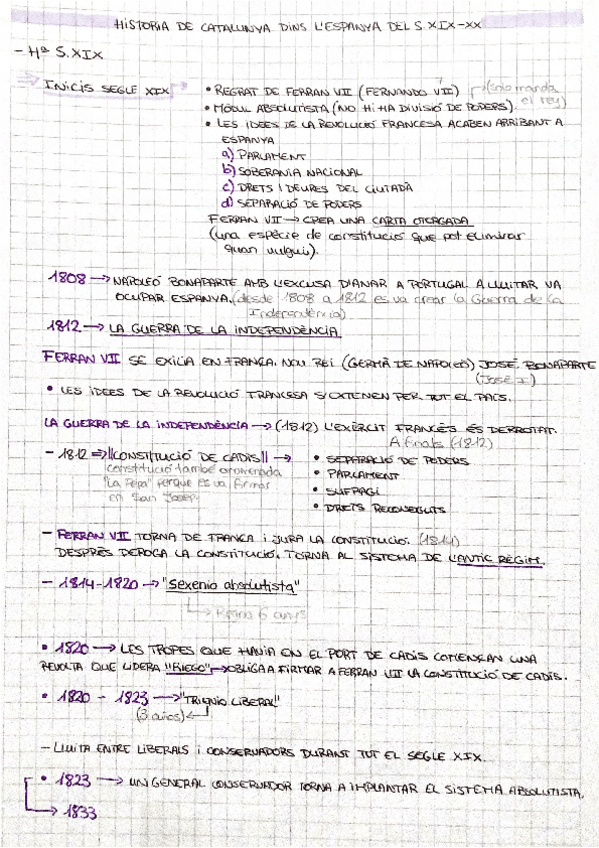 HISTORIA DE CATALUNYA DINS L'ESPANYA DEL S.XIX-XX
- Hª S.XIX
INICIS SEGLE XIX
• REGNAT DE FERRAN VII (FERNANDO VII) (solo manda
• MÒDUL ABSOLUTISTA (NO HI HA DIVISIÓ DE PODERS). el rey)
• LES IDEES DE LA REVOLUCIÓ FRANCESA ACABEN ARRIBANT A
ESPANYA
a) PARLAMENT
b) SOBERANIA NACIONAL
c) DRETS I DEURES DEL CIUTADÀ
d) SEPARACIÓ DE PODERS
FERRAN VII → CREA UNA CARTA OTORGADA
(una espècie de constitució que pot eliminar
quan vulgui).
1808 → NAPOLEÓ BONAPARTE AMB L'EXCUSA D'ANAR A PORTUGAL A LLUITAR VA
OCUPAR ESPANYA. (desde 1808 a 1812 es va crear la Guerra de la
Independència)
1812 → LA GUERRA DE LA INDEPENDÈNCIA
FERRAN VII SE EXILIA EN FRANÇA. NOU REI (GERMÀ DE NAPOLEÓ) JOSÉ BONAPARTE
(José I)
• LES IDEES DE LA REVOLUCIÓ FRANCESA S'EXTENEN PER TOT EL PAÍS.
LA GUERRA DE LA INDEPENDÈNCIA → (1812) L'EXÈRCIT FRANCÈS ÉS DERROTAT.
A finals (1812)
- 1812 ⇒ ||CONSTITUCIÓ DE CADIS|| →
constitució també anomenada
"La Pepa" perque es va firmar
en San Josep
• SEPARACIÓ DE PODERS
• PARLAMENT
• SUFRAGI
• DRETS RECONEGUTS
- FERRAN VII TORNA DE FRANÇA I JURA LA CONSTITUCIÓ. (1814)
DESPRÉS DEROGA LA CONSTITUCIÓ. TORNA AL SISTEMA DE L'ANTIC RÈGIM.
- 1814-1820 → "Sexenio absolutista"
→ 6 anys
• 1820 → LES TROPES QUE HAVIA EN EL PORT DE CADIS COMENÇAN UNA
REVOLTA QUE LIDERA "RIEGO" → OBLIGA A FIRMAR A FERRAN VII LA CONSTITUCIÓ DE CADIS.
• 1820 - 1823 → "TRIENIO LIBERAL"
(3 años) ←
- LLUITA ENTRE LIBERALS I CONSERVADORS DURANT TOT EL SEGLE XIX.
• 1823 → UN GENERAL CONSERVADOR TORNA A IMPLANTAR EL SISTEMA ABSOLUTISTA.
→ 1833